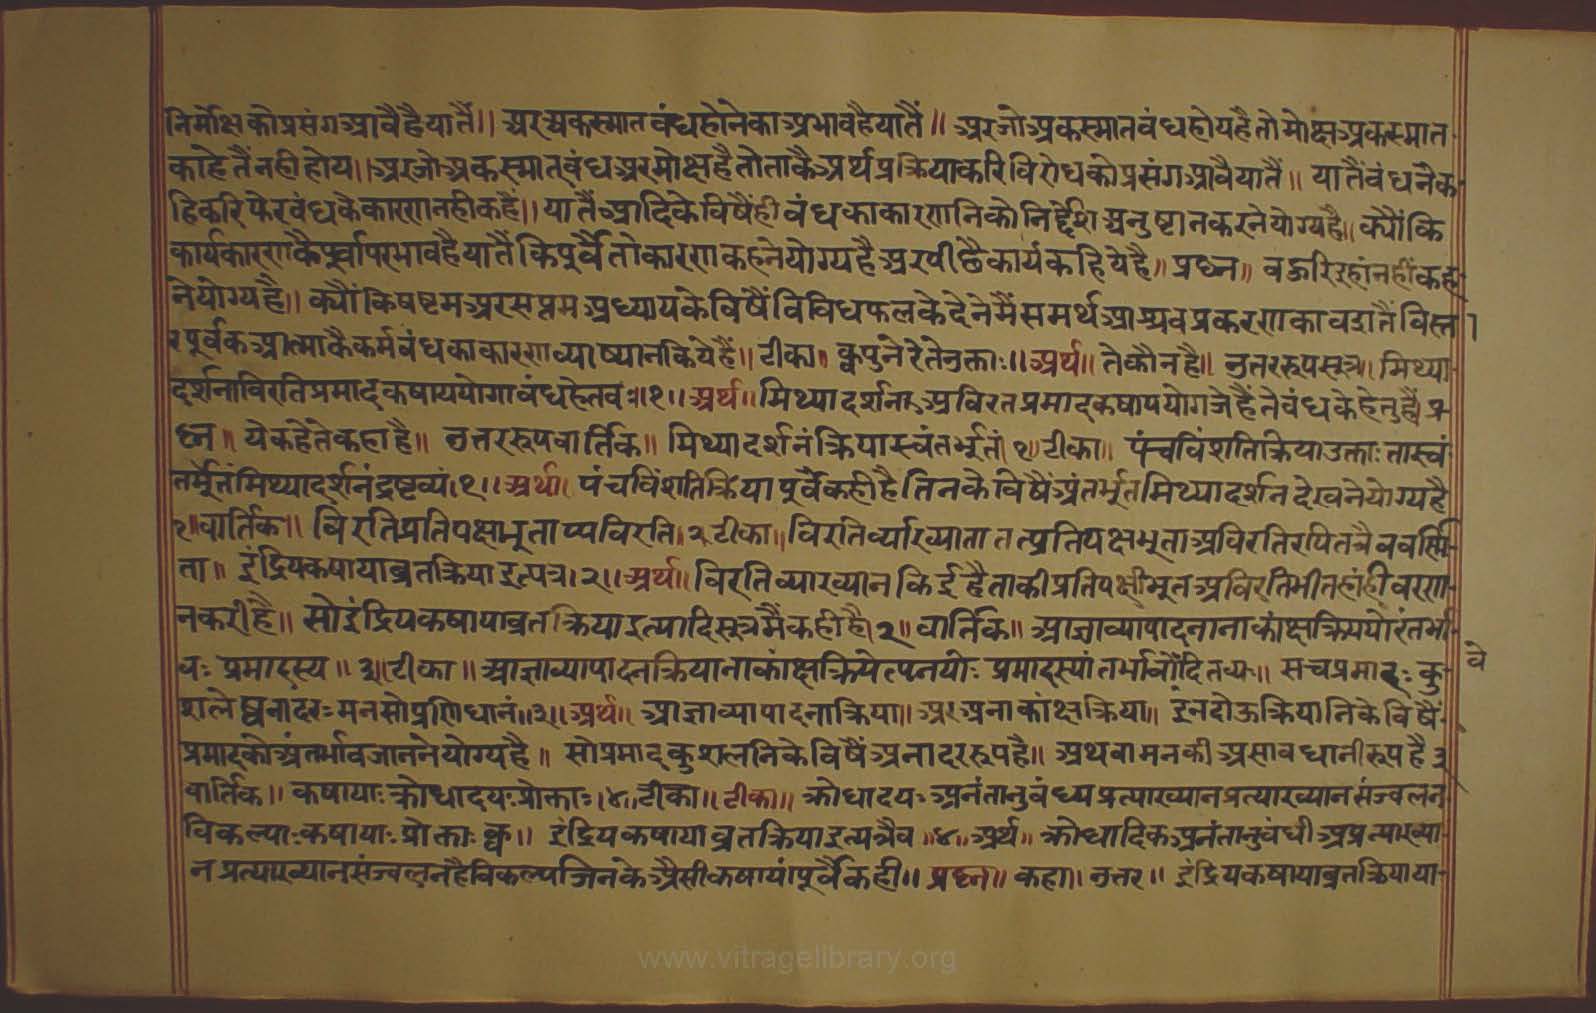 निर्मोक्षकोप्रसंगआवैहैयातैं॥ अरअकस्मातबंधहोनेकाअभावहैयातैं॥ अरजोअकस्मातबंधहोयहैतोमोक्षअकस्मात
काहेतैंनहीहोय॥अरजोअकस्मातबंधअरमोक्षहैतोताकैअर्थप्रक्रियाकरिविरोधकोप्रसंगआवैयातैं॥ यातैंबंधनैक
हिकरिफेरबंधकेकारणनहीकहैं॥ यातैंआदिकेविषैंहीबंधकाकारणनिकोनिर्द्देशअनुष्टानकरनेयोग्यहै॥ क्यौंकि
कार्यकारणकैपूर्वापरभावहैयातैंकिपूर्वैतोकारणकहनेयोग्यहैअरपीछैकार्यकहियेहै॥ प्रश्न॥ बऊरिइहांनहींकह
नेयोग्यहै॥ क्यौंकिषष्टमअरसप्तमअध्यायकेविषैंविविधफलकेदेनेमैंसमर्थआश्रवप्रकरणकावडातैंविस्ता
रपूर्वकआत्माकैकर्मबंधकाकारणव्याष्यानकियेहैं॥ टीका॥ क्वपुनेरेतेनुक्ताः॥अर्थ॥ तेकौनहै॥ नुत्तररूपसूत्र॥ मिथ्या
दर्शनाविरतिप्रमादकषाययोगाबंधहेतवः॥१॥अर्थ॥मिथ्यादर्शनअविरतप्रमादकषाययोगजेहैंतेबंधकेहेतुहैं॥प्र
श्न॥ येकहेतेकहाहै॥ नुत्तररूपवार्तिक॥ मिथ्यादर्शनंक्रियास्वंतर्भूतं।१।टीका॥ पंचविंशतिक्रियाउक्ताःतास्वं
तर्भूतंमिथ्यादर्शनंद्रष्टव्यं।१॥अर्थ॥ पंचविंशतिक्रियापूर्वैकहीहैतिनकेविषैंअंतर्भूतमिथ्यादर्शनदेखनेयोग्यहै
१।वार्तिक॥ विरतिप्रतिपक्षाभूताप्यविरति।२टीका॥विरतिर्व्याख्यातातत्प्रतिपक्षभूताअविरतिरपितत्रैववर्स्मि
ता॥ इंद्रियकषायाव्रतक्रियाइत्यत्र।२॥अर्थ॥विरतिव्याख्यानकिईहैताकीप्रतिपक्षीभूतअविरतिभीतहांहीवरण
नकरीहै॥ सोइंद्रियकषायाव्रतक्रियाइत्यादिसूत्रमैंकहीहै।२॥ वार्तिक॥ आज्ञाव्यापादनानाकांक्षक्रिययोरंतर्भा
वः प्रमादस्य॥ ३॥टीका॥ आज्ञाव्यापादनक्रियानाकांक्षक्रियेत्यनयोः प्रमादस्यांतर्भावोंदितव्यः॥ सचप्रमादः कु वे
शलेष्वनादरःमनसोप्रणिधानं॥३॥अर्थ॥ आज्ञाव्यापादनाक्रिया॥अरअनाकांक्षक्रिया॥ इनदोऊक्रियातिकेविषैं
प्रमादकोअंतर्भावजाननेयोग्यहै॥ सोप्रमादकुशलनिकेविषैंअनादररूपहै॥ अथवामनकीअसावधानीरूपहै३
वार्तिक॥ कषायाःक्रोधादयःप्रोक्ताः।४।टीका॥टीका॥ क्रोधादयः अनंतानुबंध्यप्रत्याख्यानप्रत्याख्यानसंज्वलन
विकल्पाःकषायाःप्रोक्ताःक्व॥ इंद्रियकषायाव्रतक्रियाइत्यत्रैव॥४॥अर्थ॥ क्रोधादिकअनंतानुबंधीअप्रत्याख्या
नप्रत्याख्यानसंज्वलनहैविकल्पजिनकेऔसीकषायांपूर्वैकही॥ प्रश्न॥ कहा॥ नुत्तर॥ इंद्रियकषायाव्रतक्रियाया
www.vitragelibrary.org